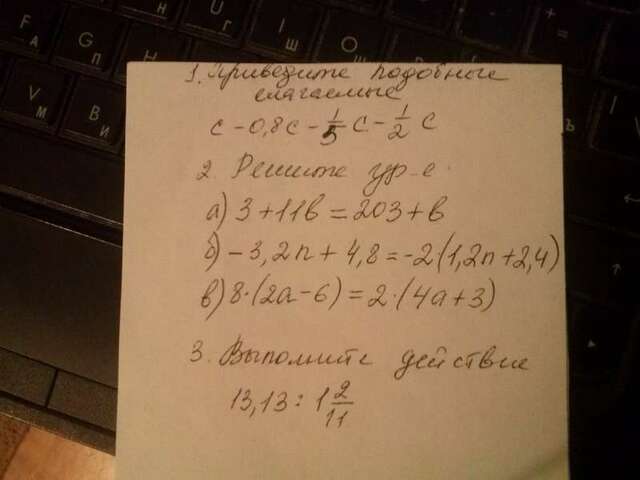 F
А
G
П
U
Г
I
Ш
O
V
М
B
И
Ъ
1. Приведите подобные
слагаемые
c - 0,8c - 1/5 c - 1/2 c
2. Решите ур-е.
а) 3 + 11b = 203 + b
б) - 3,2n + 4,8 = -2(1,2n + 2,4)
в) 8·(2a - 6) = 2·(4a + 3)
3. Выполните действие
13,13 : 1 2/11